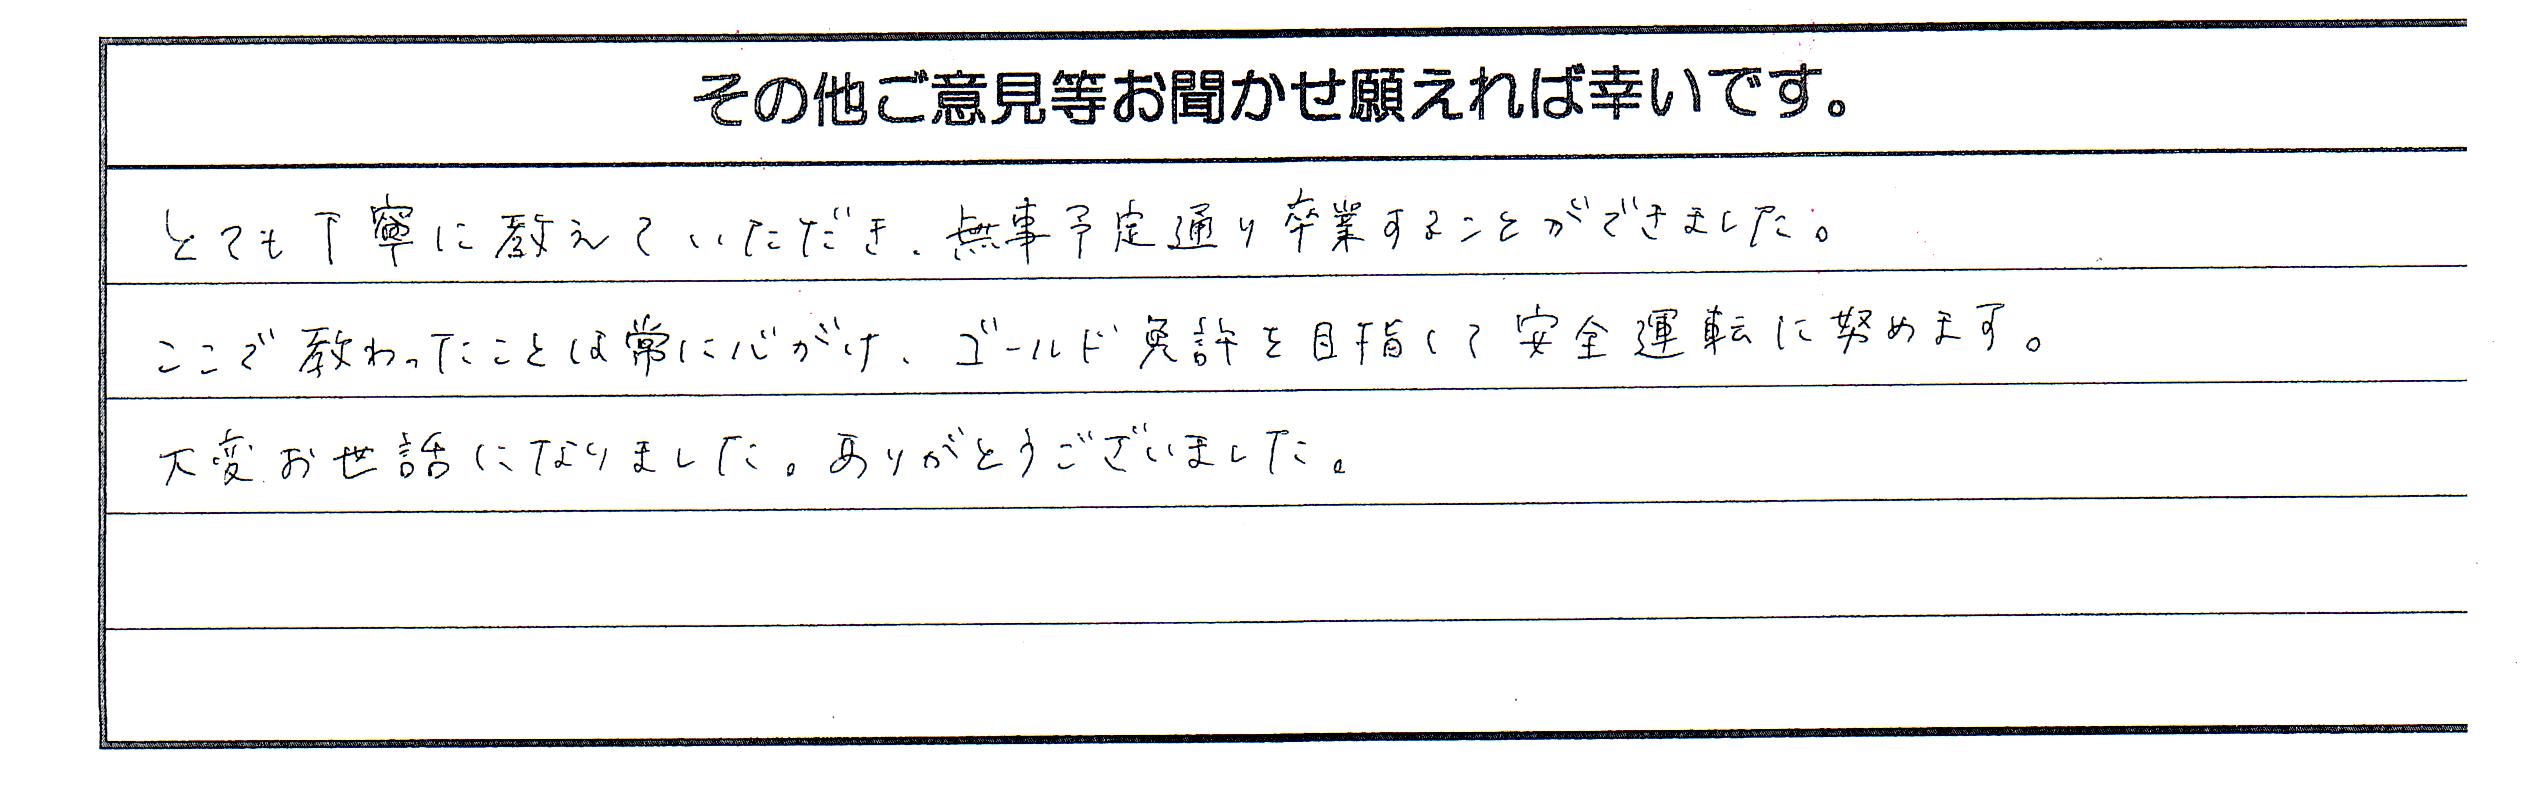 その他ご意見等お聞かせ願えれば幸いです。
とても丁寧に教えていただき、無事予定通り卒業することができました。
ここで教わったことは常に心がけ、ゴールド免許を目指して安全運転に努めます。
大変お世話になりました。ありがとうございました。